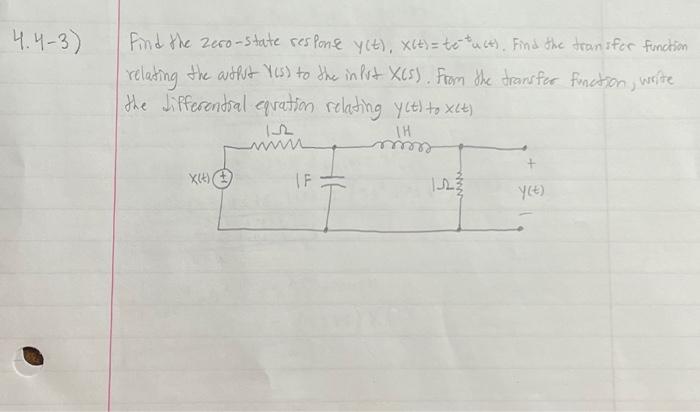 4.4-3) Find the zero-state response y(t), x(t)=te^-t u(t). Find the transfer function
relating the output Y(s) to the input X(s). From the transfer function, write
the differential equation relating y(t) to x(t)
1Ω 1H
x(t) ± 1F 1Ω + y(t) −